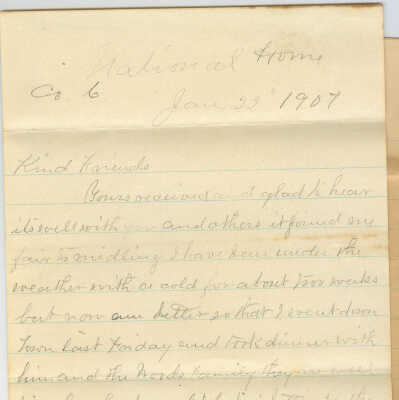 National Home
Co C
Jan 22 1907
Kind Friends
Yours received and glad to hear
its well with you and others it found me
fair to midling I have been under the
weather with a cold for about two weeks
but now am better so that I went down
Town last Friday and took dinner with
him and the Woods family they